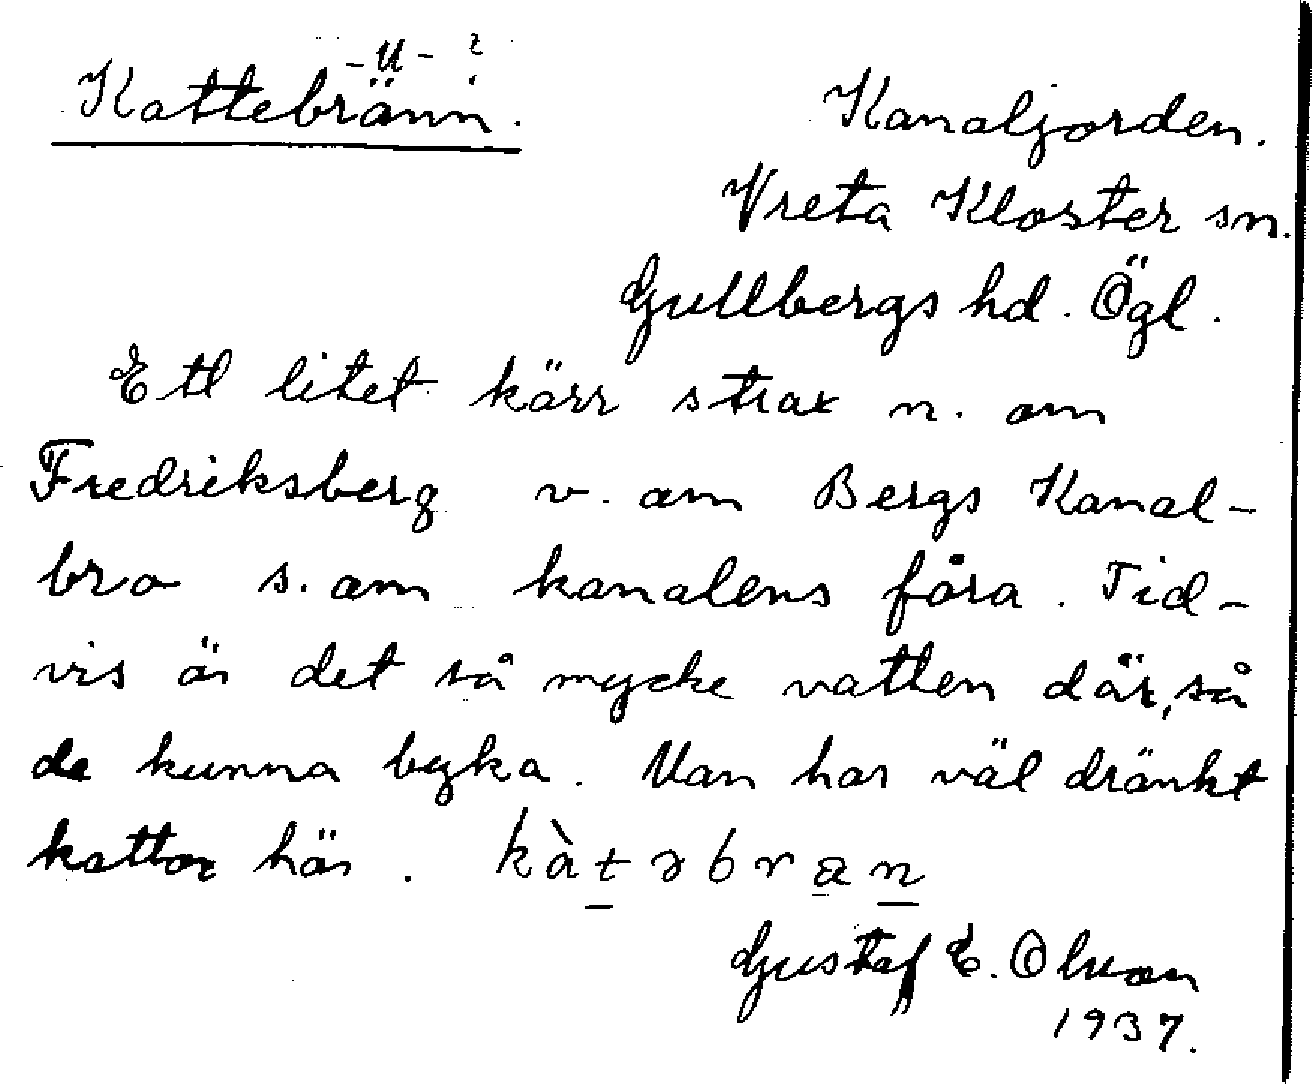 -u- ?
Kattebränn.
Kanaljorden.
Vreta Kloster sn.
Gullbergs hd. Ögl.
Ett litet kärr strax n. om
Fredriksberg v. om Bergs Kanal-
bro s. om kanalens fåra. Tid-
vis är det så mycke vatten där, så
de kunna byka. Man har väl dränkt
kattor här. kàtəbran
Gustaf E. Olsson
1937.